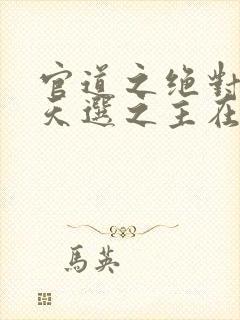 官道之绝對
天選之主在
馬英